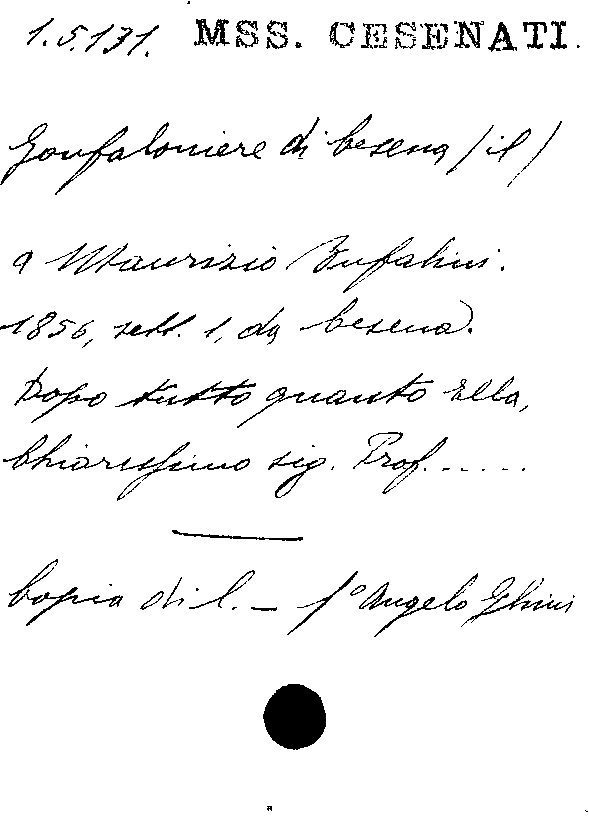 1.5.131. MSS. CESENATI.
Gonfaloniere di Cesena / il /
a Maurizio Bufalini.
1856, sett. 1, da Cesena.
Dopo tutto quanto Ella,
Chiarissimo sig. Prof......
Copia di l. — f° Angelo Ghini